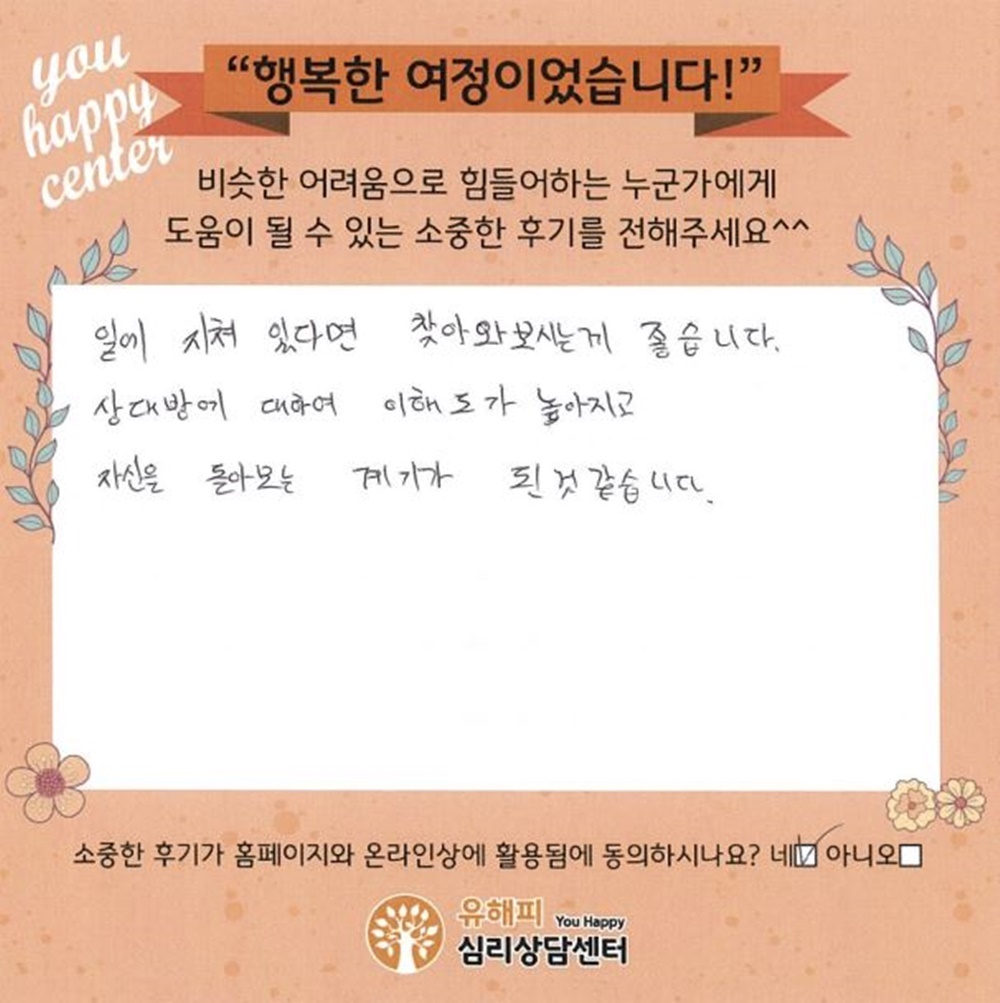 you
happy
center
“행복한 여정이었습니다!”
비슷한 어려움으로 힘들어하는 누군가에게
도움이 될 수 있는 소중한 후기를 전해주세요^^
일에 지쳐 있다면 찾아와보시는게 좋습니다.
상대방에 대하여 이해도가 높아지고
자신을 돌아보는 계기가 된것 같습니다.
소중한 후기가 홈페이지와 온라인상에 활용됨에 동의하시나요? 네☑ 아니오☐
유해피 You Happy
심리상담센터